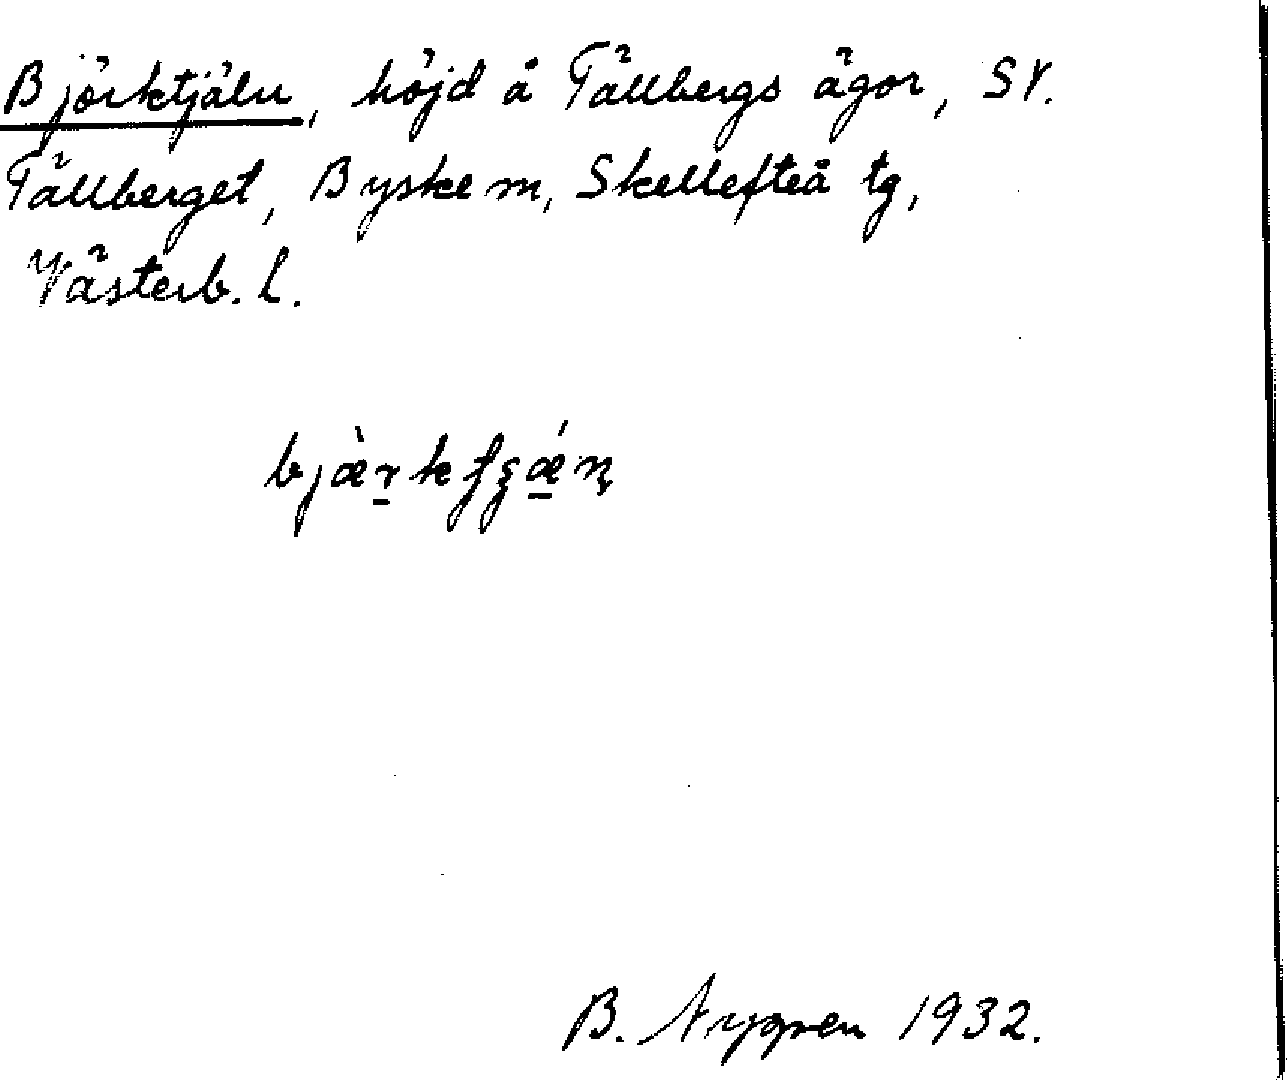 Björktjäln, höjd å Tällbergs ägor, SV.
Tällberget, Byske sn, Skellefteå tg,
Västerb. l.
B. Nygren 1932.